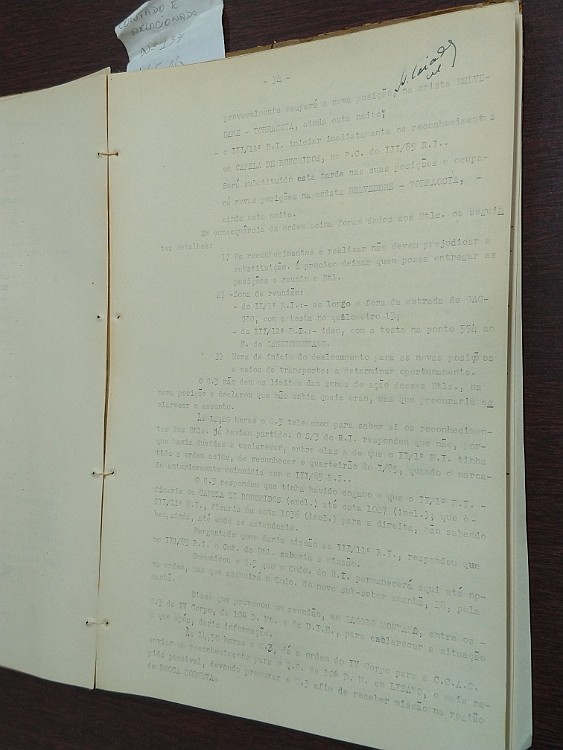 CONTADO E
RELACIONADO
Nº 137
- 34 -
provavelmente ocupará a nova posição, na crista BELVE-
DERE - GORGACETA, ainda esta noite;
- o III/11º R.I. iniciar imediatamente os reconhecimentos
em CAPELA DE RONCHIDOS, no P.C. do III/85 R.I..
Será substituído esta tarde nas suas posições e ocupa-
rá novas posições na crista BELVEDERE - GORGACETA, -
ainda esta noite.
Em consequência da ordem acima foram dados aos Btls. os seguin
tes detalhes:
1) Os reconhecimentos a realizar não devem prejudicar a
substituição. É preciso deixar quem possa entregar as
posições e reunir o Btl.
2) -Zona de reunião:
- do II/1º R.I.:- ao longo e fora da estrada de GAG-
GIO, com a testa no quilometro 13;
- do III/11º R.I.:- idem, com a testa na ponte 594 ao
N. de
3) Hora de início do deslocamento para as novas posições
e meios de transporte: a determinar oportunamente.
O G.3 não deu os limites das zonas de ação desses Btls., na
nova posição e declarou que não sabia quais eram, mas que procuraria es
clarecer o assunto.
Às 12,20 horas o G.3 telefonou para saber si os reconhecimen-
tos dos Btls. já haviam partido. O S/3 do R.I. respondeu que não, por-
que havia duvidas a esclarecer, entre elas a de que o II/1º R.I. tinha
tido a ordem acima, de reconhecer o quarteirão do I/85, quando o marca-
do anteriormente coincidia com o III/85 R.I..
O G.3 respondeu que tinha havido engano e que o II/1º R.I. -
ficaria em CAPELA DE RONCHIDOS (excl.) até cota 1027 (incl.); que o -
III/11º R.I., ficaria da cota 1036 (incl.) para a direita, não sabendo
porém, até onde se estenderia.
Perguntado quem daria missão ao III/11º R.I., respondeu que
no III/85 R.I. o Cmt. do Btl. saberia a missão.
Determinou o G.3 que o Cmdo. do R.I. permanecerá aqui até no-
va ordem, mas que assumirá o Cmdo. do novo sub-setor amanhã, 28, pela
manhã.
Disse que promoveu uma reunião, em GAGGIO MONTANO, entre os -
G.3 do IV Corpo, da 10ª D. Mt. e da D.I.E., para esclarecer a situação
e que após, daria informação.
Às 14,30 horas o G.3, dá a ordem do IV Corpo para a C.C.A.C.
enviar um reconhecimento para o Q.G. da 10ª D. M. em LIZANO, o mais ra-
pido possivel, devendo procurar o G.3 afim de receber missão na região
de ROCCA CORNETA.